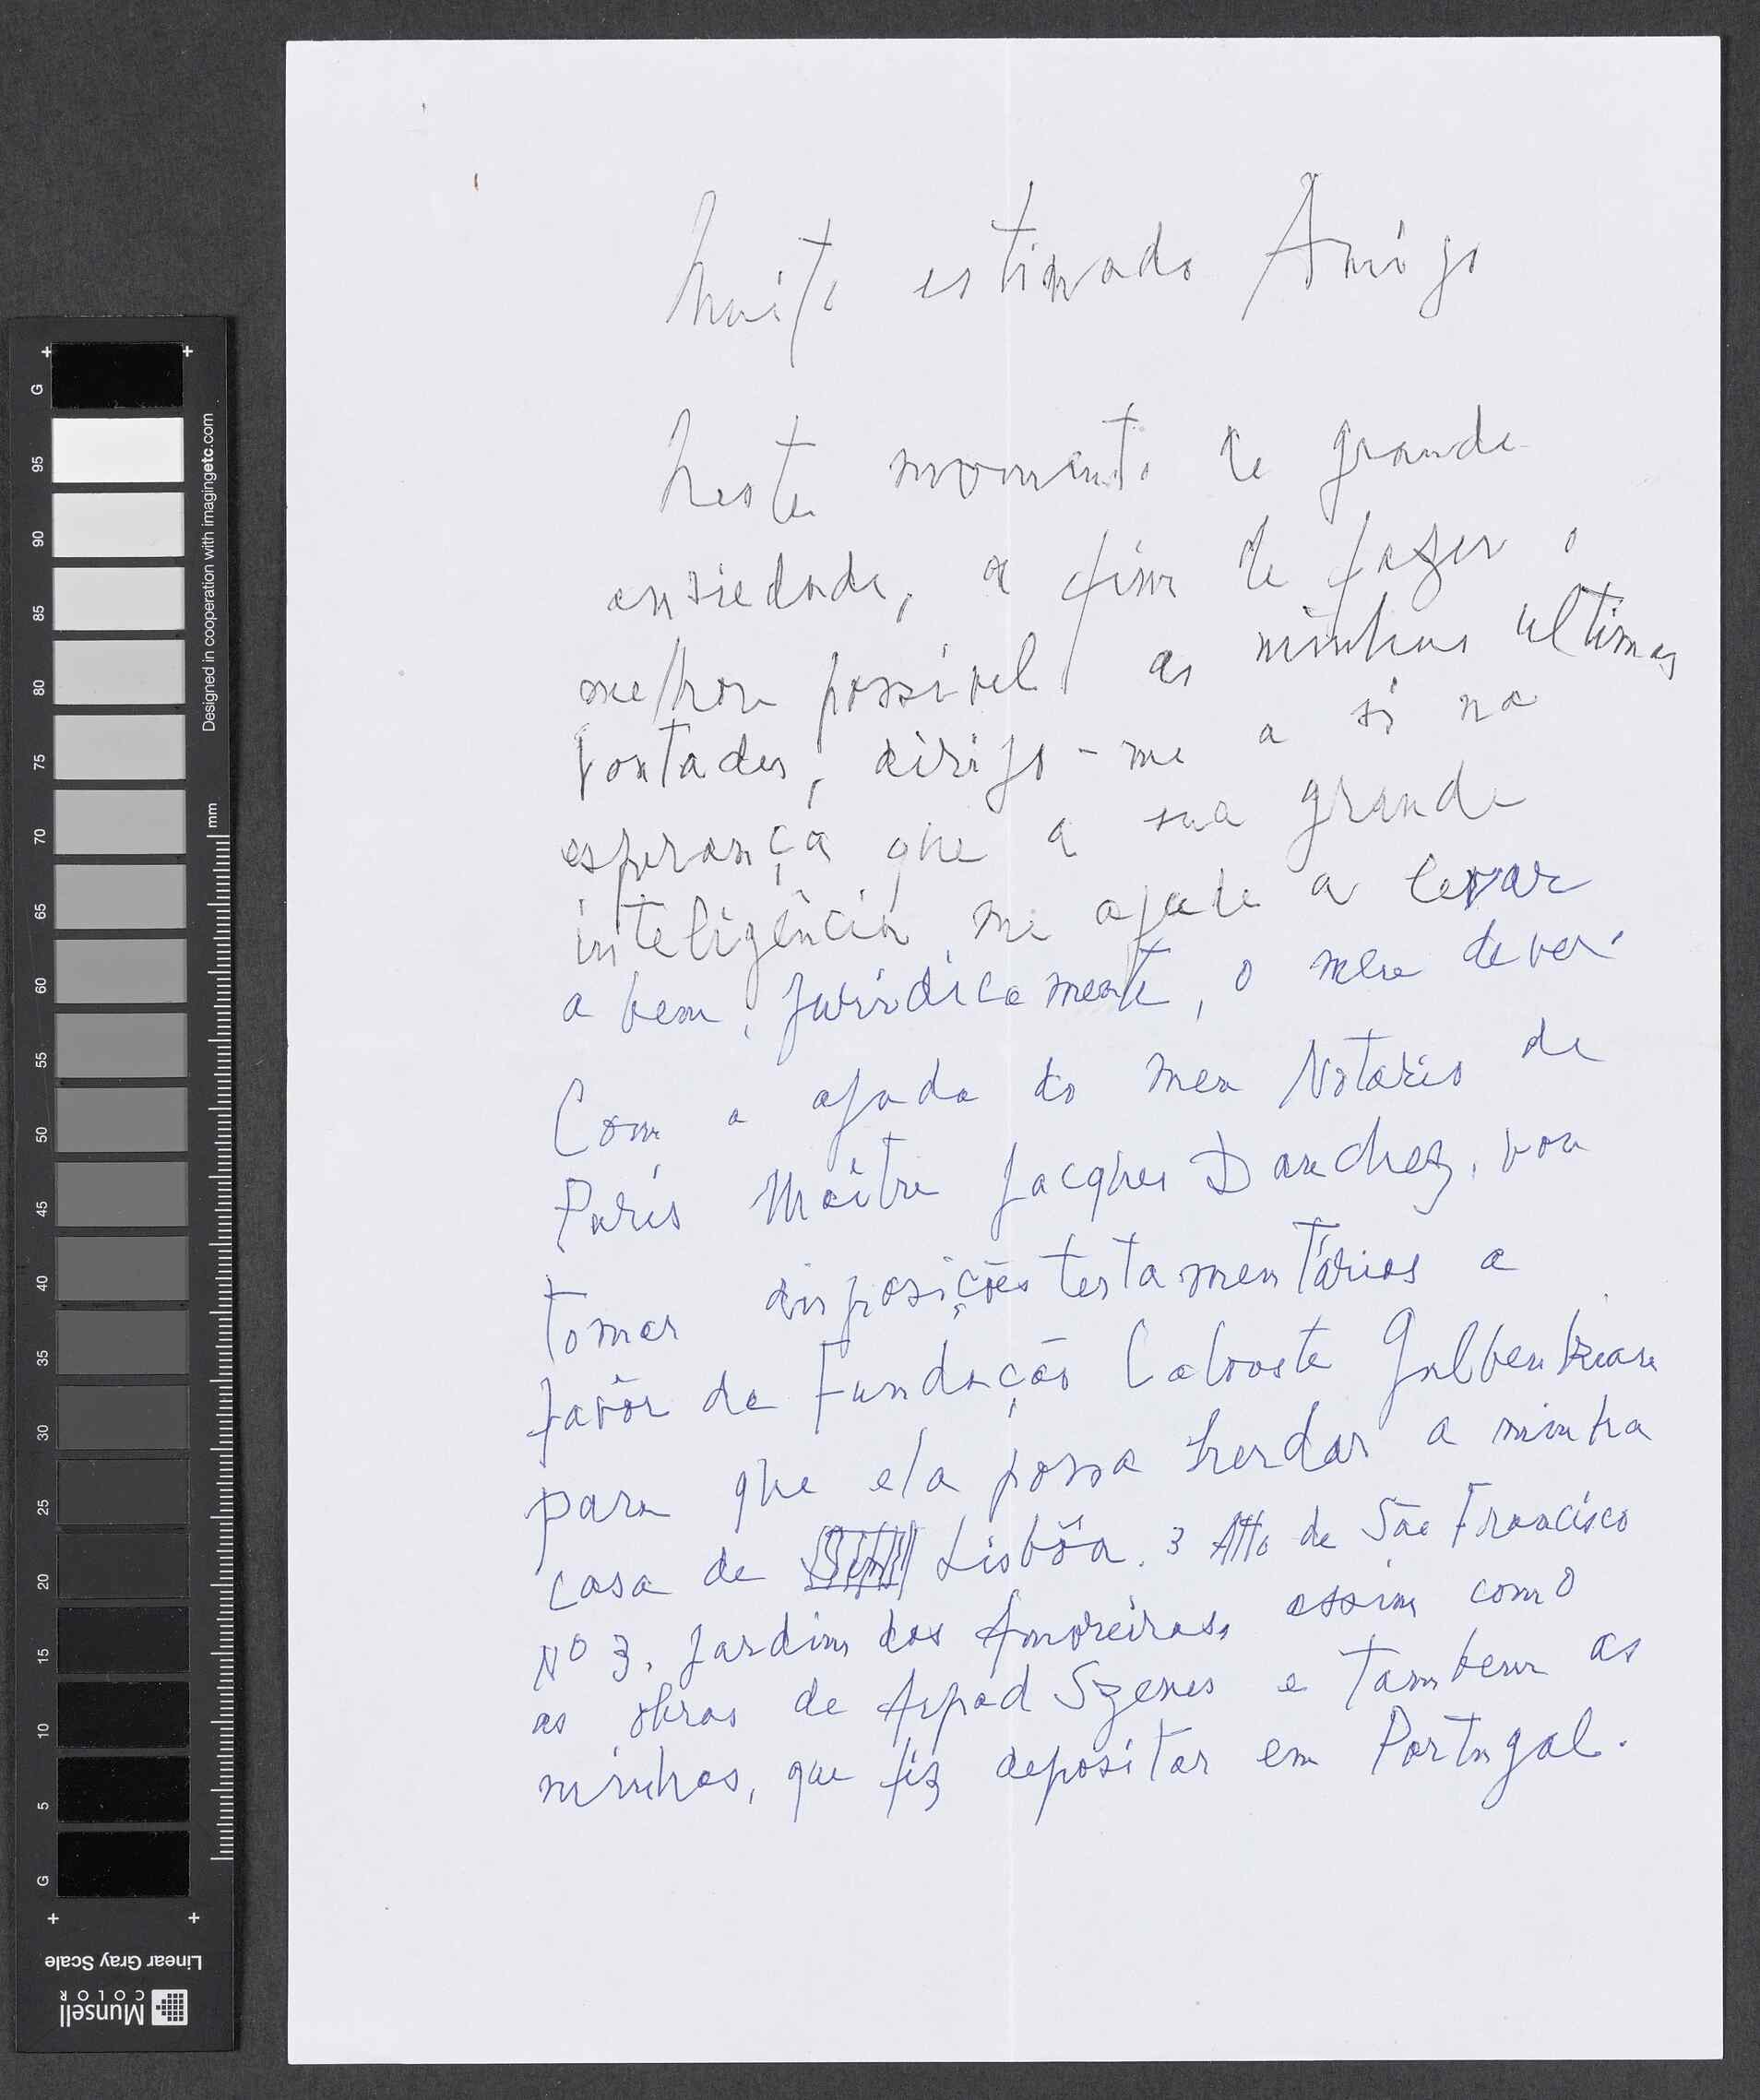 Muito estimado Amigo
Neste momento de grande
ansiedade, a fim de fazer o
melhor possivel as minhas ultimas
vontades, dirijo-me a si na
esperança que a sua grande
inteligência me ajude a levar
a bem, juridicamente, o meu dever.
Com a ajuda do meu Notario de
Paris Maître Jacques Dauchez, vou
tomar disposições testamentárias a
favôr da Fundação Calouste Gulbenkian
para que ela possa herdar a minha
casa de Lisbôa. 3 Alto de São Francisco
Nº 3, Jardim das Amoreiras, assim como
as obras de Arpad Szenes e tambem as
minhas, que fiz depositar em Portugal.
G
95
90
85
80
75
70
65
60
55
50
45
40
35
30
25
20
15
10
5
G
Designed in cooperation with imagingetc.com
mm
Linear Gray Scale
Munsell
COLOR